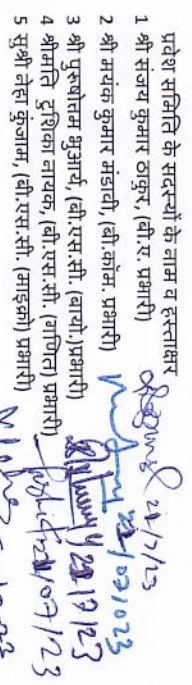 प्रवेश समिति के सदस्यों के नाम व हस्ताक्षर
1 श्री संजय कुमार ठाकुर, (बी.ए. प्रभारी) 21/7/23
2 श्री मयंक कुमार मंडावी, (बी.कॉम. प्रभारी) 21/07/023
3 श्री पुरुषोत्तम भुआर्य, (बी.एस.सी. (बायो.प्रभारी) 21/7/23
4 श्रीमति टुशिका नायक, (बी.एस.सी. (गणित) प्रभारी) 21/07/23
5 सुश्री नेहा कुंजाम, (बी.एस.सी. (माइक्रो) प्रभारी)